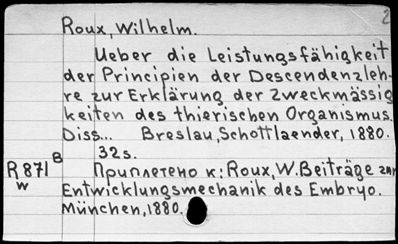 2
Roux, Wilhelm.
Ueber die Leistungsfähigkeit
der Principien der Descendenzleh-
re zur Erklärung der Zweckmässig
keiten des thierischen Organismus.
Diss... Breslau, Schottlaender, 1880.
32s.
R871 B
w
Приплетено к: Roux, W. Beiträge zur
Entwicklungsmechanik des Embryo.
München, 1880.